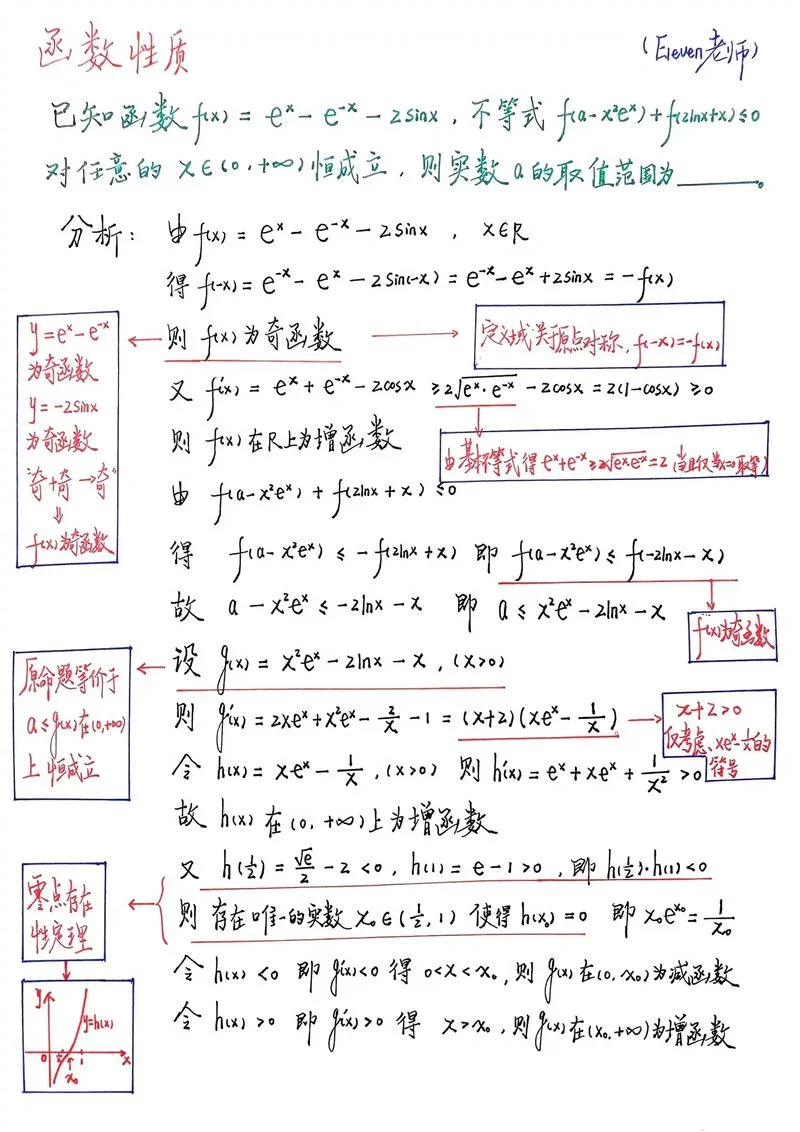 函数性质
(Eleven老师)
已知函数f(x) = eˣ - e⁻ˣ - 2sinx, 不等式 f(a-x²eˣ)+f(2lnx+x)≤0
对任意的 x∈(0,+∞)恒成立, 则实数a的取值范围为______。
分析: 由f(x) = eˣ - e⁻ˣ - 2sinx , x∈R
得 f(-x) = e⁻ˣ - eˣ - 2sin(-x) = e⁻ˣ - eˣ + 2sinx = -f(x)
则 f(x)为奇函数
定义域关于原点对称, f(-x)=-f(x)
y=eˣ-e⁻ˣ
为奇函数
y=-2sinx
为奇函数
"奇+奇→奇"
⇓
f(x)为奇函数
又 f'(x) = eˣ + e⁻ˣ - 2cosx ≥ 2√(eˣ·e⁻ˣ) - 2cosx = 2(1-cosx) ≥ 0
则 f(x)在R上为增函数
由基本不等式得 eˣ+e⁻ˣ≥2√(eˣe⁻ˣ)=2 (当且仅当x=0取等)
由 f(a-x²eˣ) + f(2lnx+x) ≤ 0
得 f(a-x²eˣ) ≤ -f(2lnx+x) 即 f(a-x²eˣ) ≤ f(-2lnx-x)
f(x)为奇函数
故 a-x²eˣ ≤ -2lnx-x 即 a ≤ x²eˣ-2lnx-x
设 g(x) = x²eˣ-2lnx-x, (x>0)
原命题等价于
a≤g(x)在(0,+∞)
上恒成立
则 g'(x) = 2xeˣ+x²eˣ-2/x-1 = (x+2)(xeˣ-1/x)
x+2>0
仅考虑xeˣ-1/x的
符号
令 h(x) = xeˣ-1/x, (x>0) 则 h'(x) = eˣ+xeˣ+1/x² >0
故 h(x) 在(0,+∞)上为增函数
又 h(1/2) = √e/2 - 2 < 0, h(1) = e-1>0, 即 h(1/2)·h(1)<0
则 存在唯一的实数 x₀∈(1/2,1) 使得 h(x₀)=0 即 x₀eˣ⁰=1/x₀
零点存在
性定理
令 h(x)<0 即 g'(x)<0 得 0<x<x₀, 则 g(x)在(0,x₀)为减函数
令 h(x)>0 即 g'(x)>0 得 x>x₀, 则 g(x)在(x₀,+∞)为增函数
y
y=h(x)
0 1/2 1 x
x₀